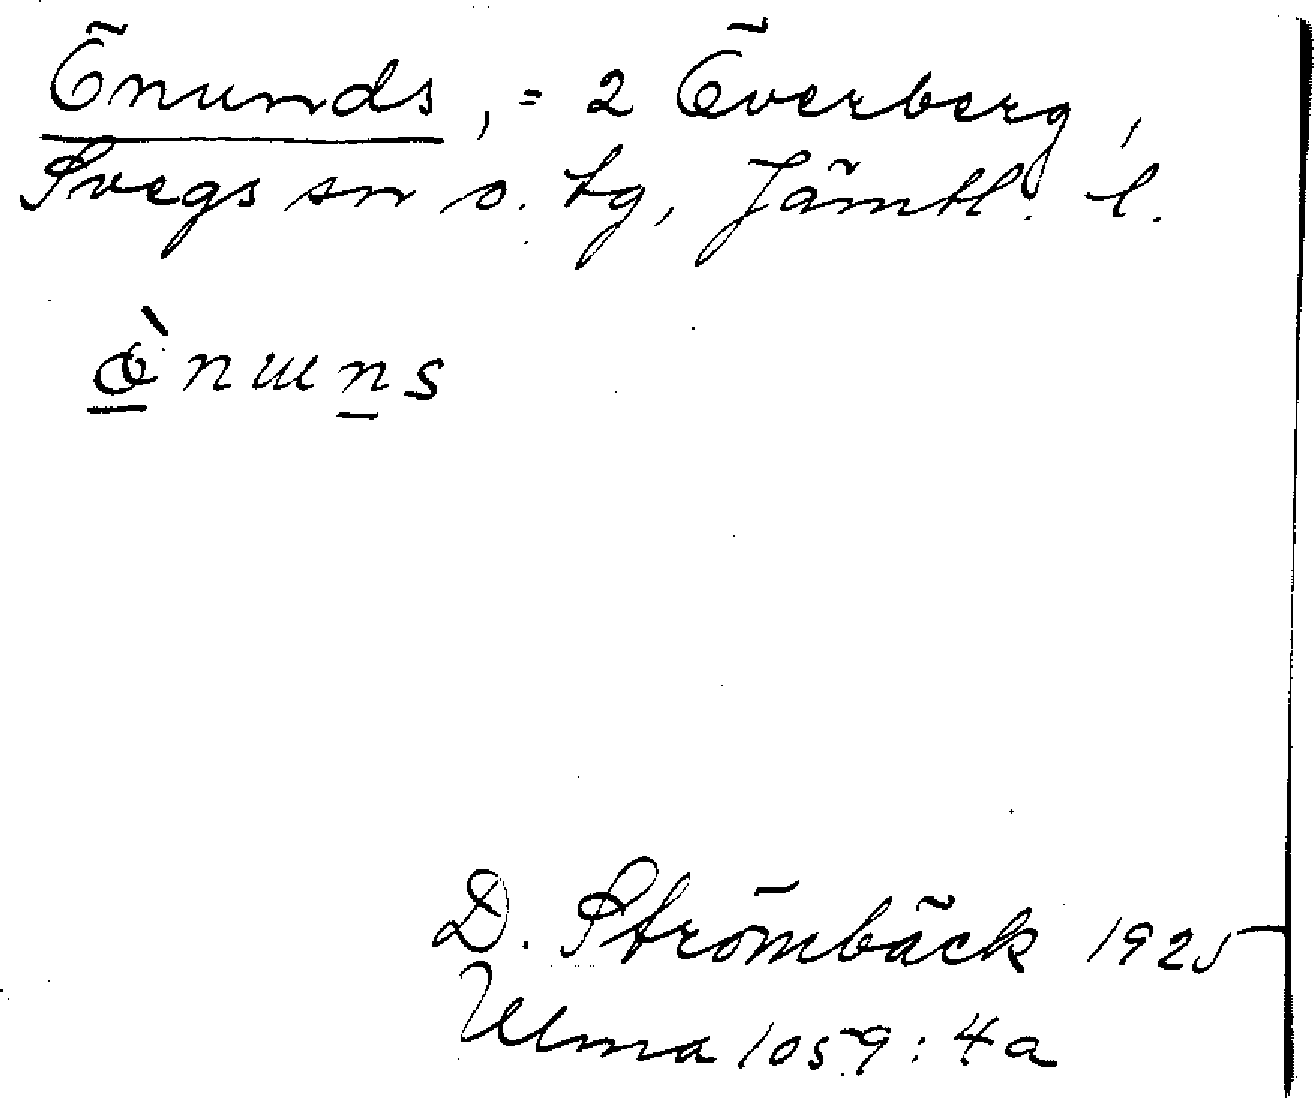 Önunds, = 2 Överberg,
Svegs sn o. tg, Jämtl. l.
ö̀nɯns
D. Strömbäck 1925
Ulma 1059:4a